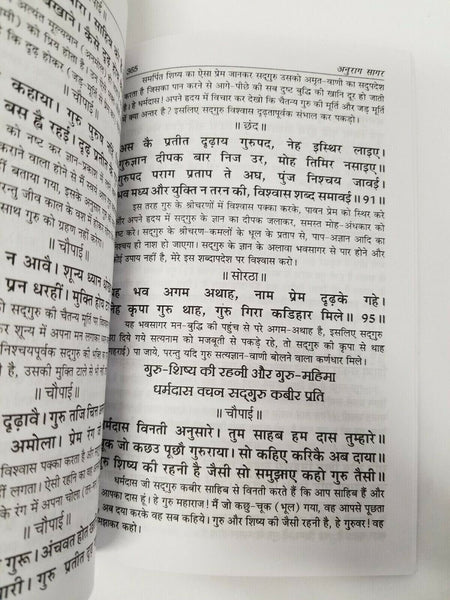 बखाने। कैसे दृढ़
अत्यंत मूल्यवान
को प्रिय होता है।
कि दृढ़ होकर
॥ चौपाई ॥
कहाया। गुरु पुरुष की
बस ह्वै रहई। दृढ़ प्रतीत
को नष्ट कर ज्ञान-प्रकाश
कराने वाला होने से मैं
बताया गया, इसके अनुसार
परन्तु जीव काल के वश में होने
साथ गुरु को ग्रहण नहीं करता।
॥ चौपाई ॥
न आवै। शून्य ध्यान
प्रन धरहीं। मुक्ति होय
को सद्गुरु की चैतन्य मूर्ति पर
कर शून्य में अपना मन लगाकर
निश्चयपूर्वक सद्गुरु की भक्ति
है, उसकी मुक्ति टाले से
॥ चौपाई ॥
दृढ़ावै। गुरु तजि चित
अमोला। प्रेम रंग
विश्वास पक्का करता है और
नहीं लगाता। ऐसी रहनी का
के रंग में अपना चोला
॥ चौपाई ॥
गुरु। अंचवत होत
गुरु प्रतीत
365 अनुराग सागर
समर्पित शिष्य का ऐसा प्रेम जानकर सद्गुरु उसको अमृत-वाणी का सदुपदेश
है जिसका पान करने से आगे-पीछे की सब दुष्ट बुद्धि की खानि दूर हो जाती
है। हे धर्मदास! अपने हृदय में विचार कर देखो कि चैतन्य गुरु की मूर्ति और जड़ मूर्ति
में क्या अन्तर है? इसलिए सद्गुरु विश्वास दृढ़तापूर्वक संभाल कर पकड़ो।
॥ छंद ॥
अस कै प्रतीत दृढ़ाय गुरुपद, नेह इस्थिर लाइए।
गुरुज्ञान दीपक बार निज उर, मोह तिमिर नसाइए॥
गुरुपद पराग प्रताप ते अघ, पुंज निश्चय जावई।
भव मध्य और युक्ति न तरन की, विश्वास शब्द समावई॥91॥
इस तरह गुरु के श्रीचरणों में विश्वास पक्का करके, पावन प्रेम को स्थिर करे
और अपने हृदय में सद्गुरु के ज्ञान का दीपक जलाकर, समस्त मोह-अंधकार को
करे। सद्गुरु के श्रीचरण-कमलों के धूल के प्रताप से, पाप-अज्ञान आदि का
ही नाश हो जाएगा। सद्गुरु के ज्ञान के अलावा भवसागर से पार होने और
कोई उपाय नहीं है, मेरे इस शब्दापदेश पर विश्वास करो।
॥ सोरठा ॥
यह भव अगम अथाह, नाम प्रेम दृढ़कै गहे।
लेह कृपा गुरु थाह, गुरु गिरा कडिहार मिले॥ 95॥
यह भवसागर मन-बुद्धि की पहुंच से परे अगम-अथाह है, इसलिए सद्गुरु
दिये गये सत्यनाम को मजबूती से पकड़े रहे, तो सद्गुरु की कृपा से थाह
(गहराई) पा जाये, परन्तु यदि गुरु सत्यज्ञान-वाणी बोलने वाला कर्णधार मिले।
गुरु-शिष्य की रहनी और गुरु-महिमा
धर्मदास वचन सद्गुरु कबीर प्रति
॥ चौपाई ॥
धर्मदास विनती अनुसारे। तुम साहब हम दास तुम्हारे॥
चूक जो कछउ पूछौ गुरुराया। सो कहिए करिकै अब दाया॥
गुरु शिष्य की रहनी है जैसी सो समुझाए कहो गुरु तैसी॥
धर्मदास जी सद्गुरु कबीर साहिब से विनती करते हैं कि आप साहिब हैं और
आपका दास हूं। हे गुरु महाराज! मैं जो कछु-चूक (भूल) गया, वह आपसे पूछता
अब दया करके वह सब कहिये। गुरु और शिष्य की जैसी रहनी है, हे गुरुवर! वह
समझाकर कहो।